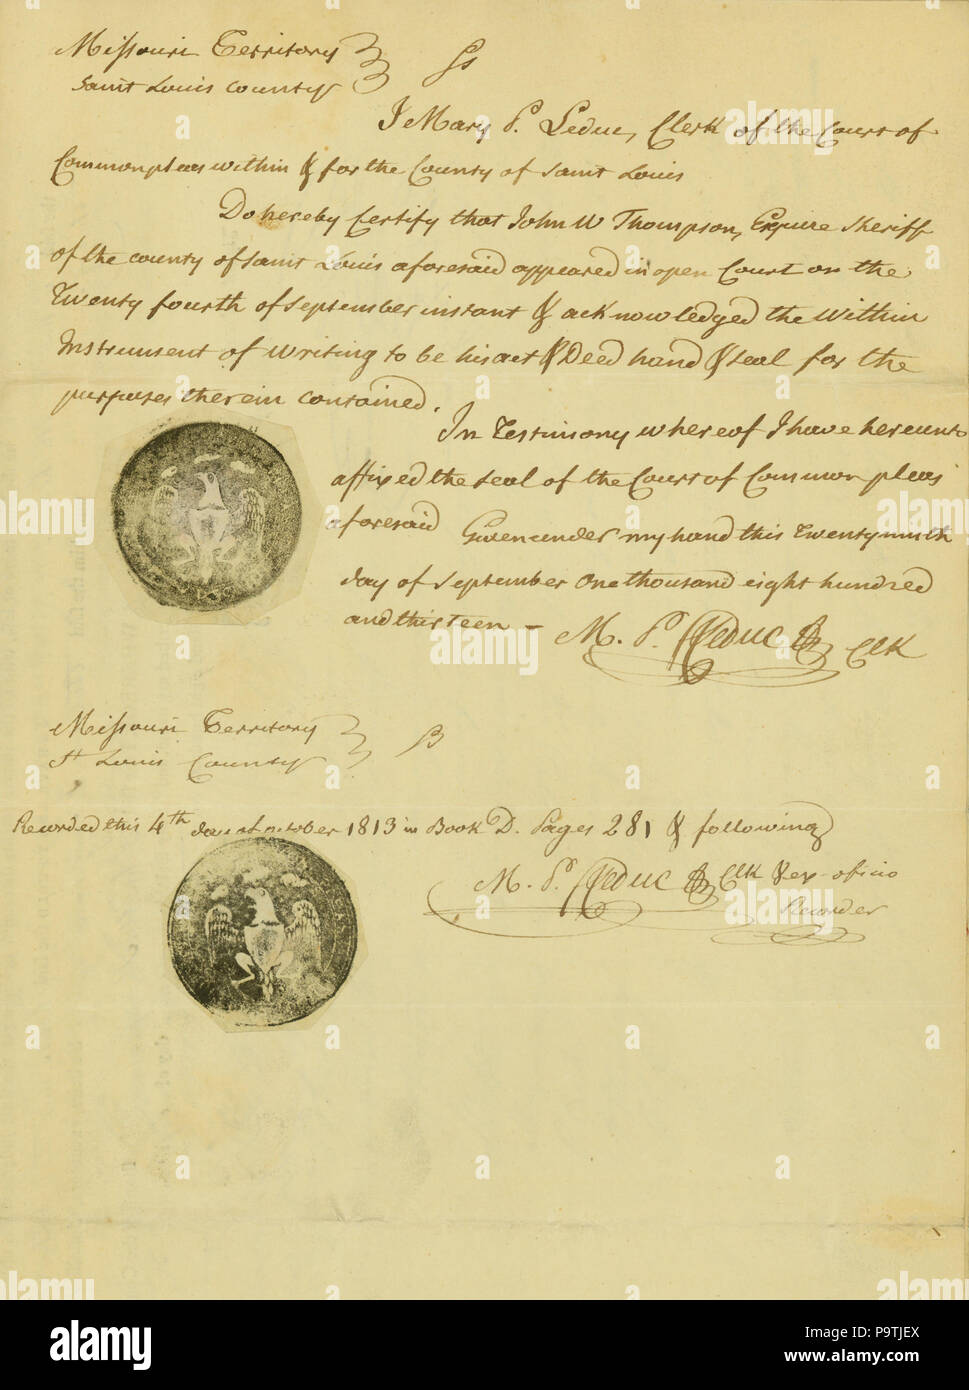 Missouri Territory } Ss
Saint Louis County
I Mary P. Leduc, Clerk of the Court of
Common pleas within & for the County of Saint Louis
Do hereby Certify that John W Thompson, Esquire Sheriff
of the county of Saint Louis aforesaid appeared in open Court on the
Twenty fourth of September instant & acknowledged the within
Instrument of writing to be his act & Deed hand & seal for the
purposes therein contained.
In Testimony whereof I have hereunto
affixed the seal of the Court of Common pleas
aforesaid Given under my hand this Twenty ninth
day of September One thousand eight hundred
and thirteen – M. P. Leduc Clk
Missouri Territory }
St Louis County
Recorded this 4th day of october 1813 in Book D. Pages 281 & following
M. P. Leduc Clk & ex-oficio
Recorder
alamy
Image ID: P9TJEX
www.alamy.com